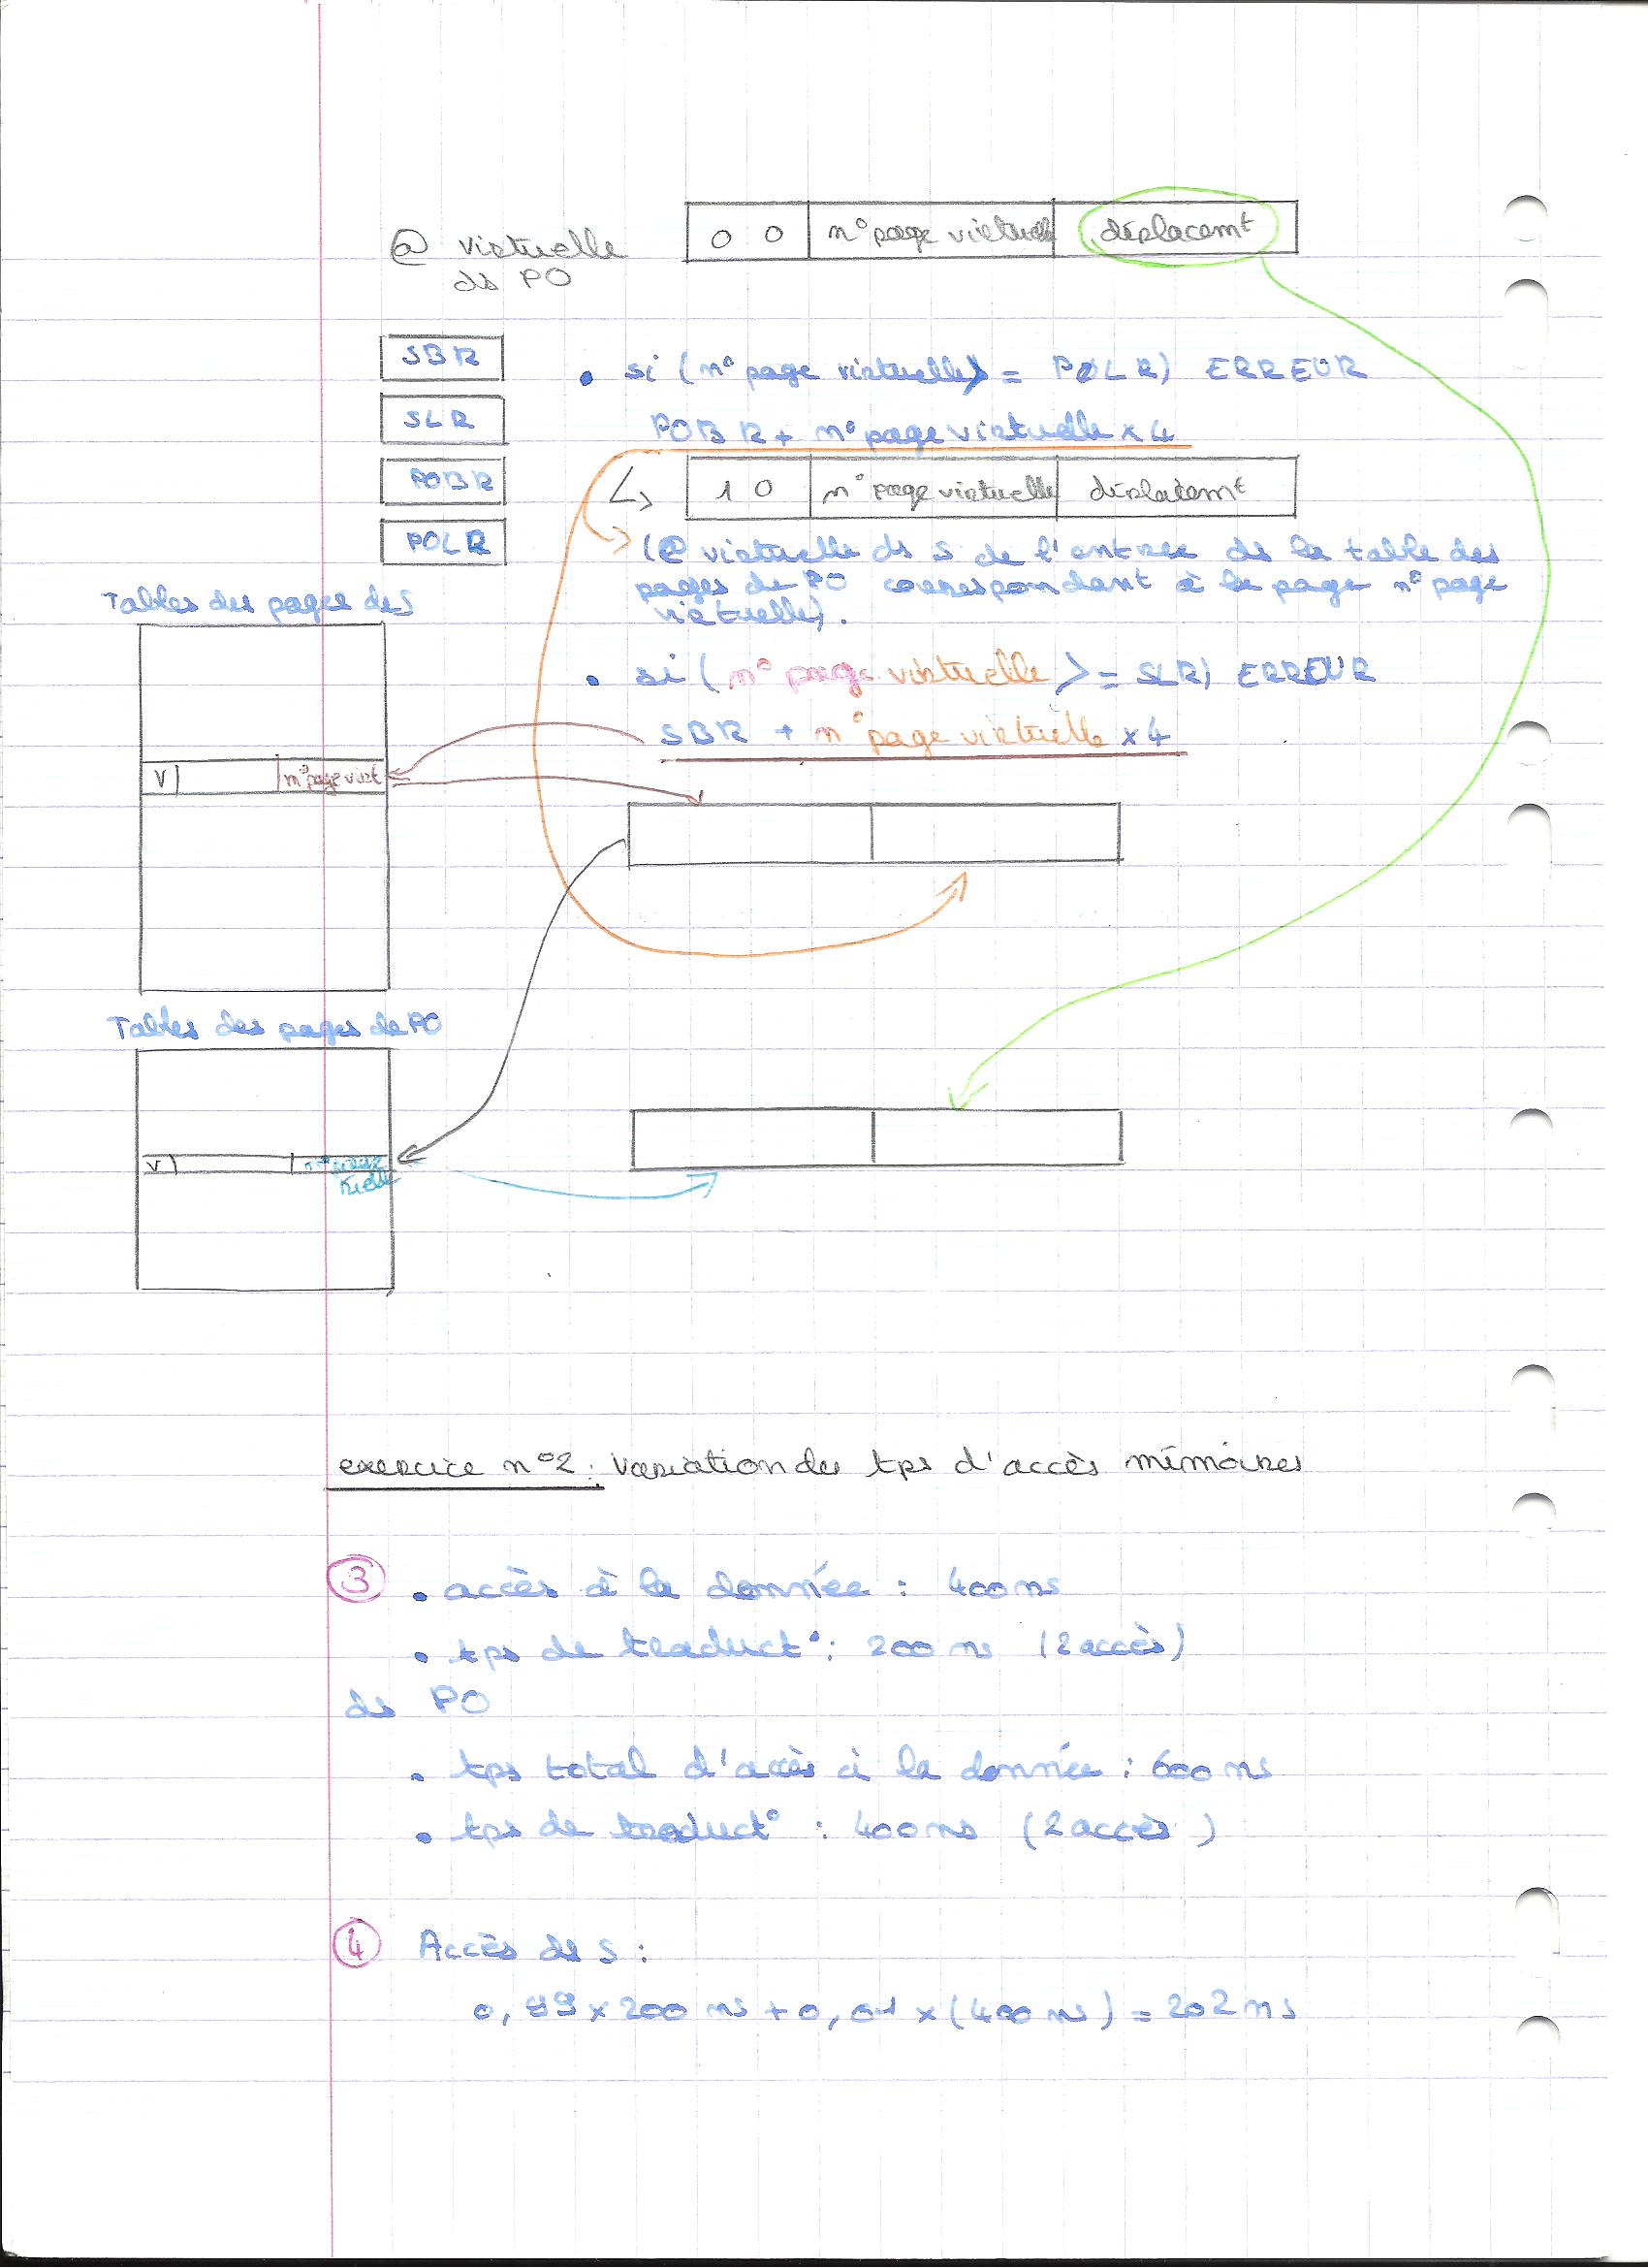 @ virtuelle
ds PO
0 0 n° page virtuelle déplacemt
SBR
SLR
POBR
POLR
• si (n° page virtuelle >= POLR) ERREUR
POBR + n° page virtuelle x 4
1 0 n° page virtuelle déplacemt
(@ virtuelle ds S de l'entrée ds la table des
pages de PO correspondant à la page n° page
virtuelle).
• si (n° page virtuelle >= SLR) ERREUR
SBR + n° page virtuelle x 4
Tables des pages de S
V n° page virt
Tables des pages de PO
V n° page
réelle
exercice n°2 : Variation des tps d'accès mémoires
3 • accès à la donnée : 400 ns
• tps de traduct° : 200 ns (2 accès)
ds PO
• tps total d'accès à la donnée : 600 ns
• tps de traduct° : 400 ns (2 accès)
4 Accès ds S :
0,99 x 200 ns + 0,01 x (400 ns) = 202 ns